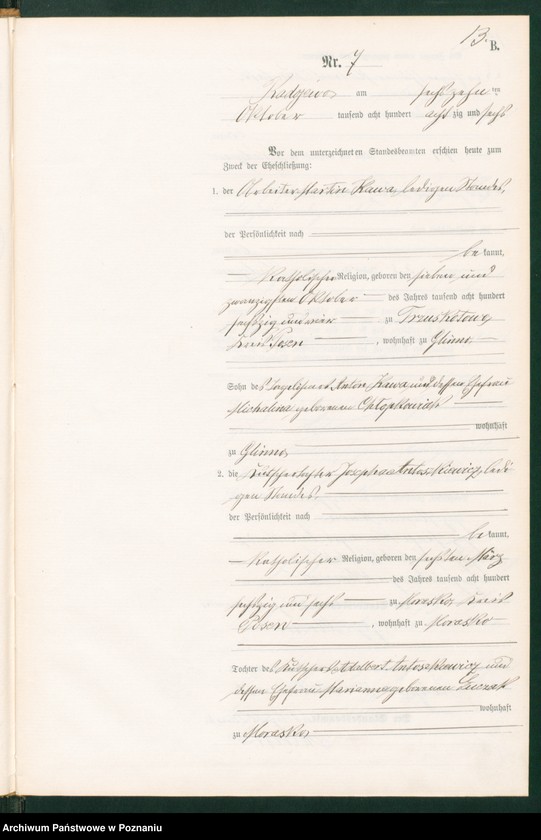 13.
B.
Nr. 7
Radojewo am sechszehnten
Oktober tausend acht hundert achtzig und sechs
Vor dem unterzeichneten Standesbeamten erschien heute zum
Zweck der Eheschließung:
1. der Arbeiter Martin Kawa, ledigen Standes,
der Persönlichkeit nach
bekannt,
katholischer Religion, geboren den sieben und
zwanzigsten Oktober des Jahres tausend acht hundert
sechszig und vier zu
Kreis Posen, wohnhaft zu Glinno
Sohn des Anton Kawa und dessen Ehefrau
Michalina geborenen
wohnhaft
zu Glinno
2. die Josepha Antoszkiewicz, ledi
gen Standes,
der Persönlichkeit nach
bekannt,
katholischer Religion, geboren den sechsten März
des Jahres tausend acht hundert
sechszig und sechs zu Morasko, Kreis
Posen, wohnhaft zu Morasko
Tochter des Adalbert Antoszkiewicz und
dessen Ehefrau Marianna geborenen
wohnhaft
zu Morasko
Archiwum Państwowe w Poznaniu